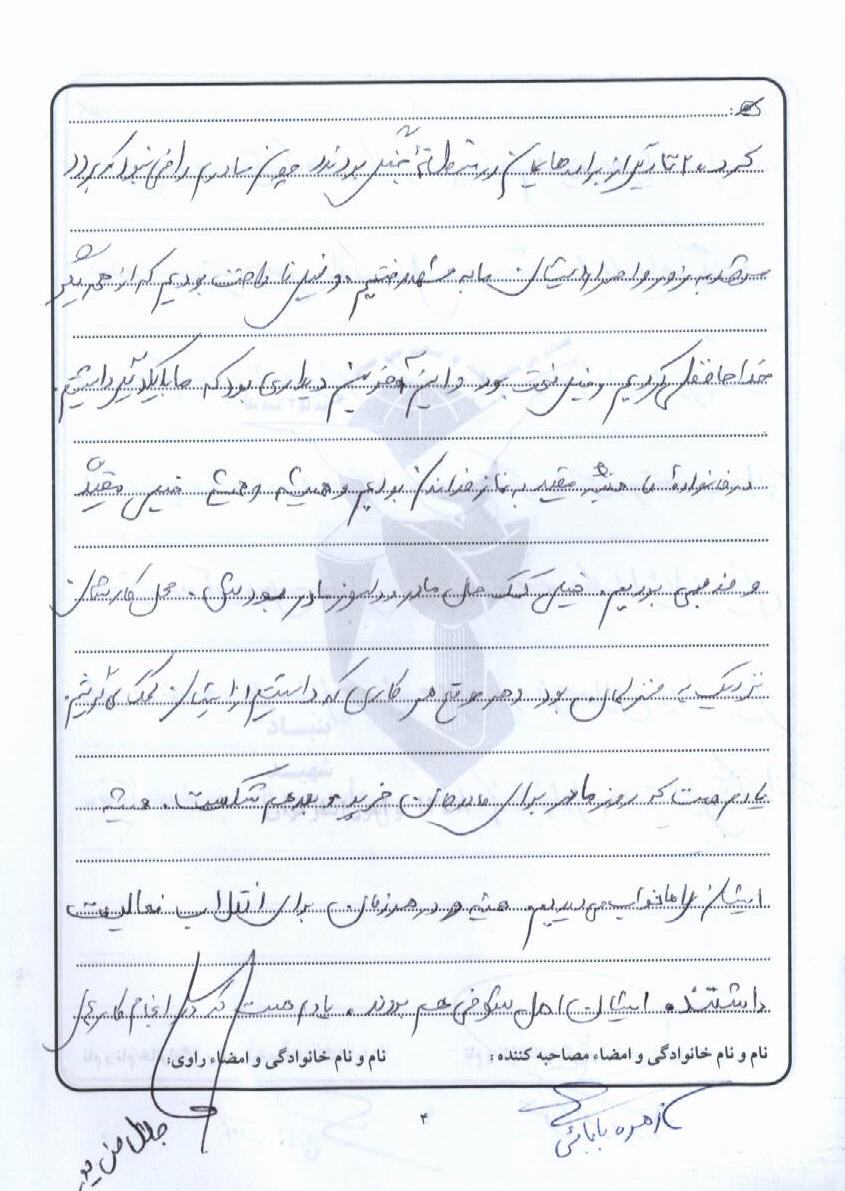 کرد. ۲ تا دیگر از برادرهایمان در منطقهٔ جنگی بودند چون مادرم راضی نبود که برود
مشهد به زور و اصرار ایشان ما به مشهد رفتیم. و خیلی ناراحت بودیم که از همدیگر
خداحافظی کردیم و خیلی سخت بود و این آخرین دیداری بود که ما با یکدیگر داشتیم.
در خانوادهٔ ما همیشه مقید به نماز خواندن بودیم و همیشه و همیشه خیلی مقید
و مذهبی بودیم. خیلی کمک حال مادر و دلسوز مادر بودش. محل کارشان
نزدیک به منزلمان بود و هر موقع هر کاری که داشتیم از ایشان کمک می‌گرفتیم.
یادم هست که روز مادر برای مادرمان خرید و بعد هم شکست. همیشه
ایشان را ما خواب می‌دیدیم. همیشه و در هر زمان برای انقلاب فعالیت
داشتند. ایشان اهل شوخی هم بودند. یادم هست که در انجام کارهای
نام و نام خانوادگی و امضاء مصاحبه کننده :
نام و نام خانوادگی و امضاء راوی:
زهره بابائی
جلال
۴
بنیاد
شهید